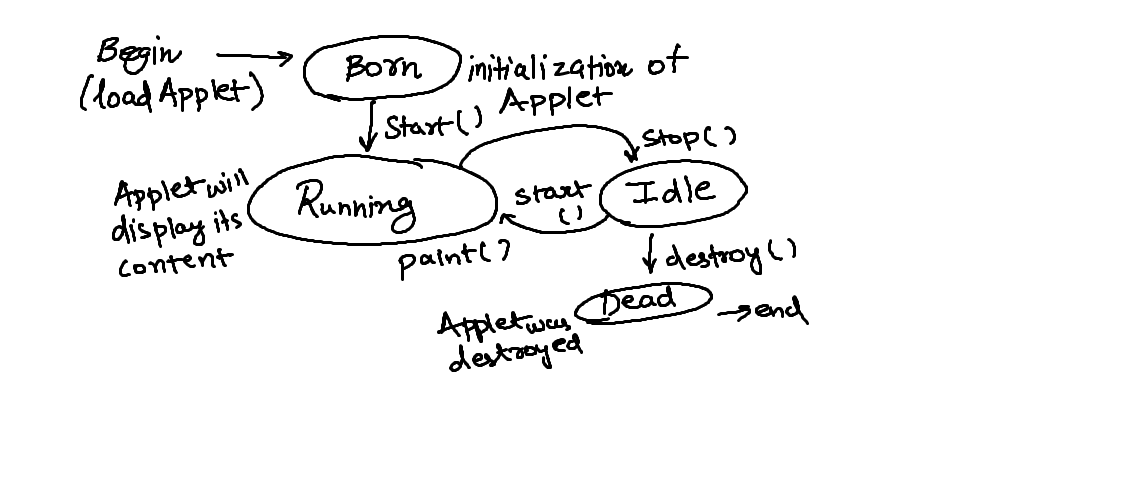 Begin
(load Applet)
Born
initialization of
Applet
Start()
Stop()
Applet will
display its
content
Running
start
()
Idle
paint()
destroy()
Dead
→end
Applet was
destroyed